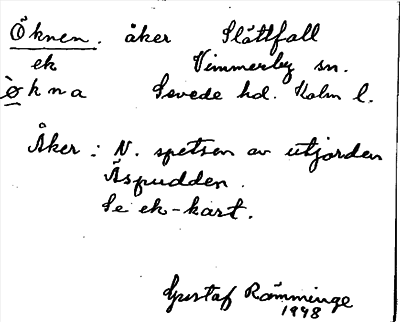 Öknen. åker Slättfall
ek Vimmerby sn.
ökna Sevede hd. Kalm l.
Åker: N. spetsen av utjorden
Äspudden.
Se ek-kart.
Gustaf Rämminge
1948